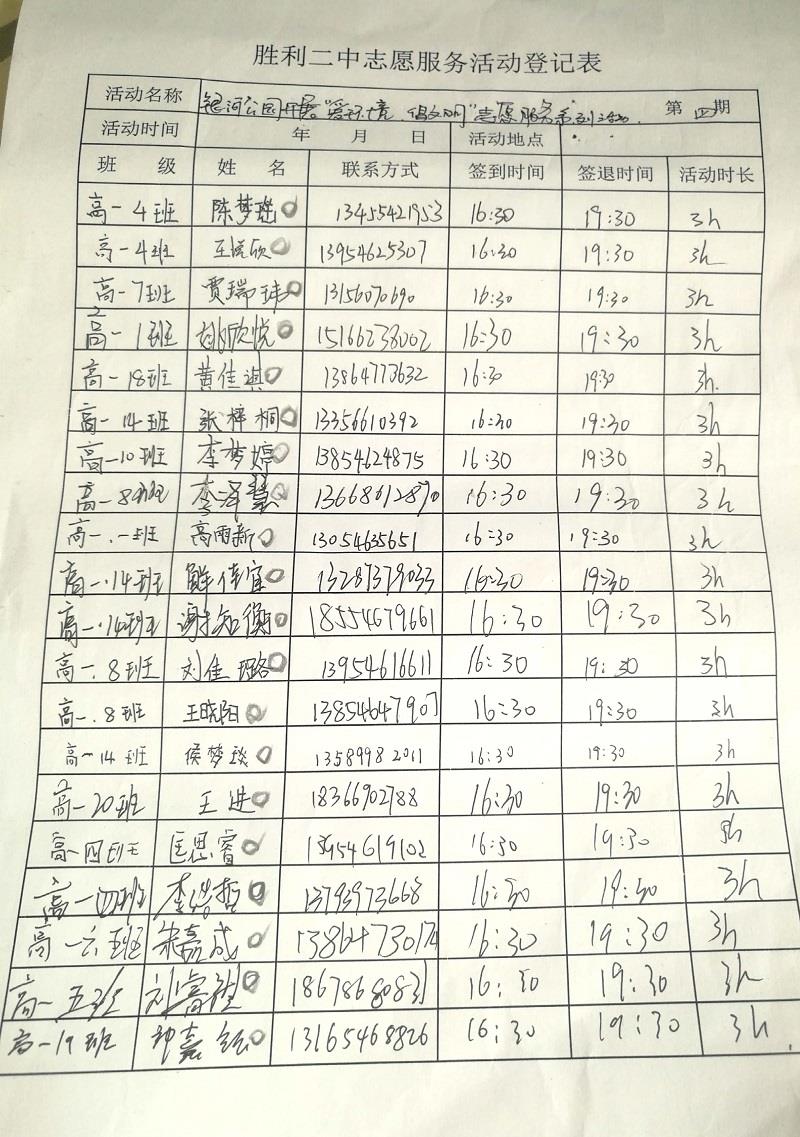 胜利二中志愿服务活动登记表
活动名称 银河公园开展"爱环境、倡文明"志愿服务系列活动. 第 四 期
活动时间 年 月 日 活动地点
班 级 姓 名 联系方式 签到时间 签退时间 活动时长
高一4班 陈梦瑶 13455421953 16:30 19:30 3h
高一4班 王 欣 13954625307 16:30 19:30 3h
高一7班 贾瑞玮 13156070690 16:30 19:30 3h
高一1班 胡欣悦 15166238002 16:30 19:30 3h
高一18班 黄佳淇 13864773632 16:30 19:30 3h.
高一14班 张梓桐 13356610392 16:30 19:30 3h
高一10班 李梦婷 13854624875 16:30 19:30 3h
高一8班 李泽慧 13668612890 16:30 19:30 3h
高一.一班 高雨新 13054635651 16:30 19:30 3h
高一.14班 鲜佳宜 13287379033 16:30 19:30 3h
高一.14班 谢知衡 18554679661 16:30 19:30 3h
高一.8班 刘佳璐 13954616611 16:30 19:30 3h
高一.8班 王晓阳 13854647907 16:30 19:30 3h
高一14班 侯梦琰 13589982011 16:30 19:30 3h
高一20班 王进 18366902788 16:30 19:30 3h
高一四班 匡思睿 13954619102 16:30 19:30 3h
高一四班 李浩哲 13793973668 16:30 19:30 3h
高一六班 宋嘉成 13864730174 16:30 19:30 3h
高一五班 刘睿 18678680831 16:30 19:30 3h
高一19班 嘉 13165468826 16:30 19:30 3h